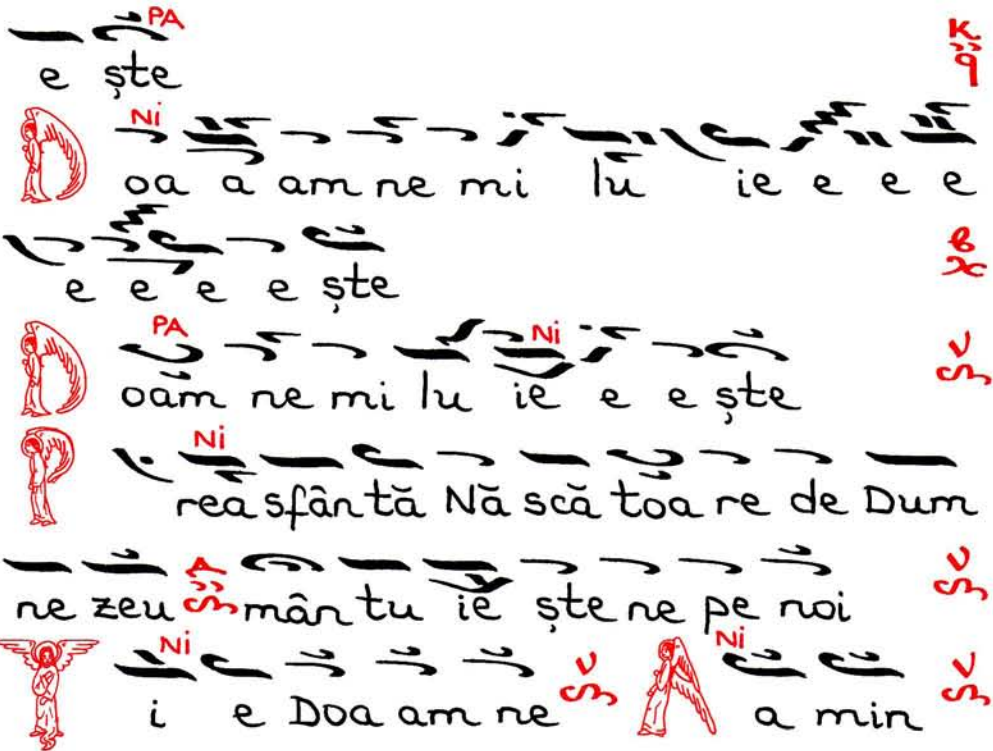 PA
e ște
Ni
Doa a am ne mi lu ie e e e
e e e e ște
PA Ni
Doam ne mi lu ie e e ște
Ni
Prea sfân tă Nă scă toa re de Dum
ne zeu mân tu ie ște ne pe noi
Ni Ni
Ti e Doa am ne A a min